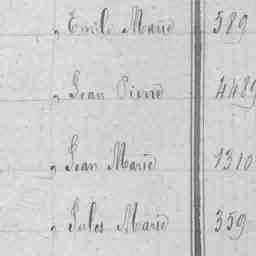 „ Emile Marie 589
„ Jean Pierre 4489
„ Jean Marie 1310
„ Jules Marie 359